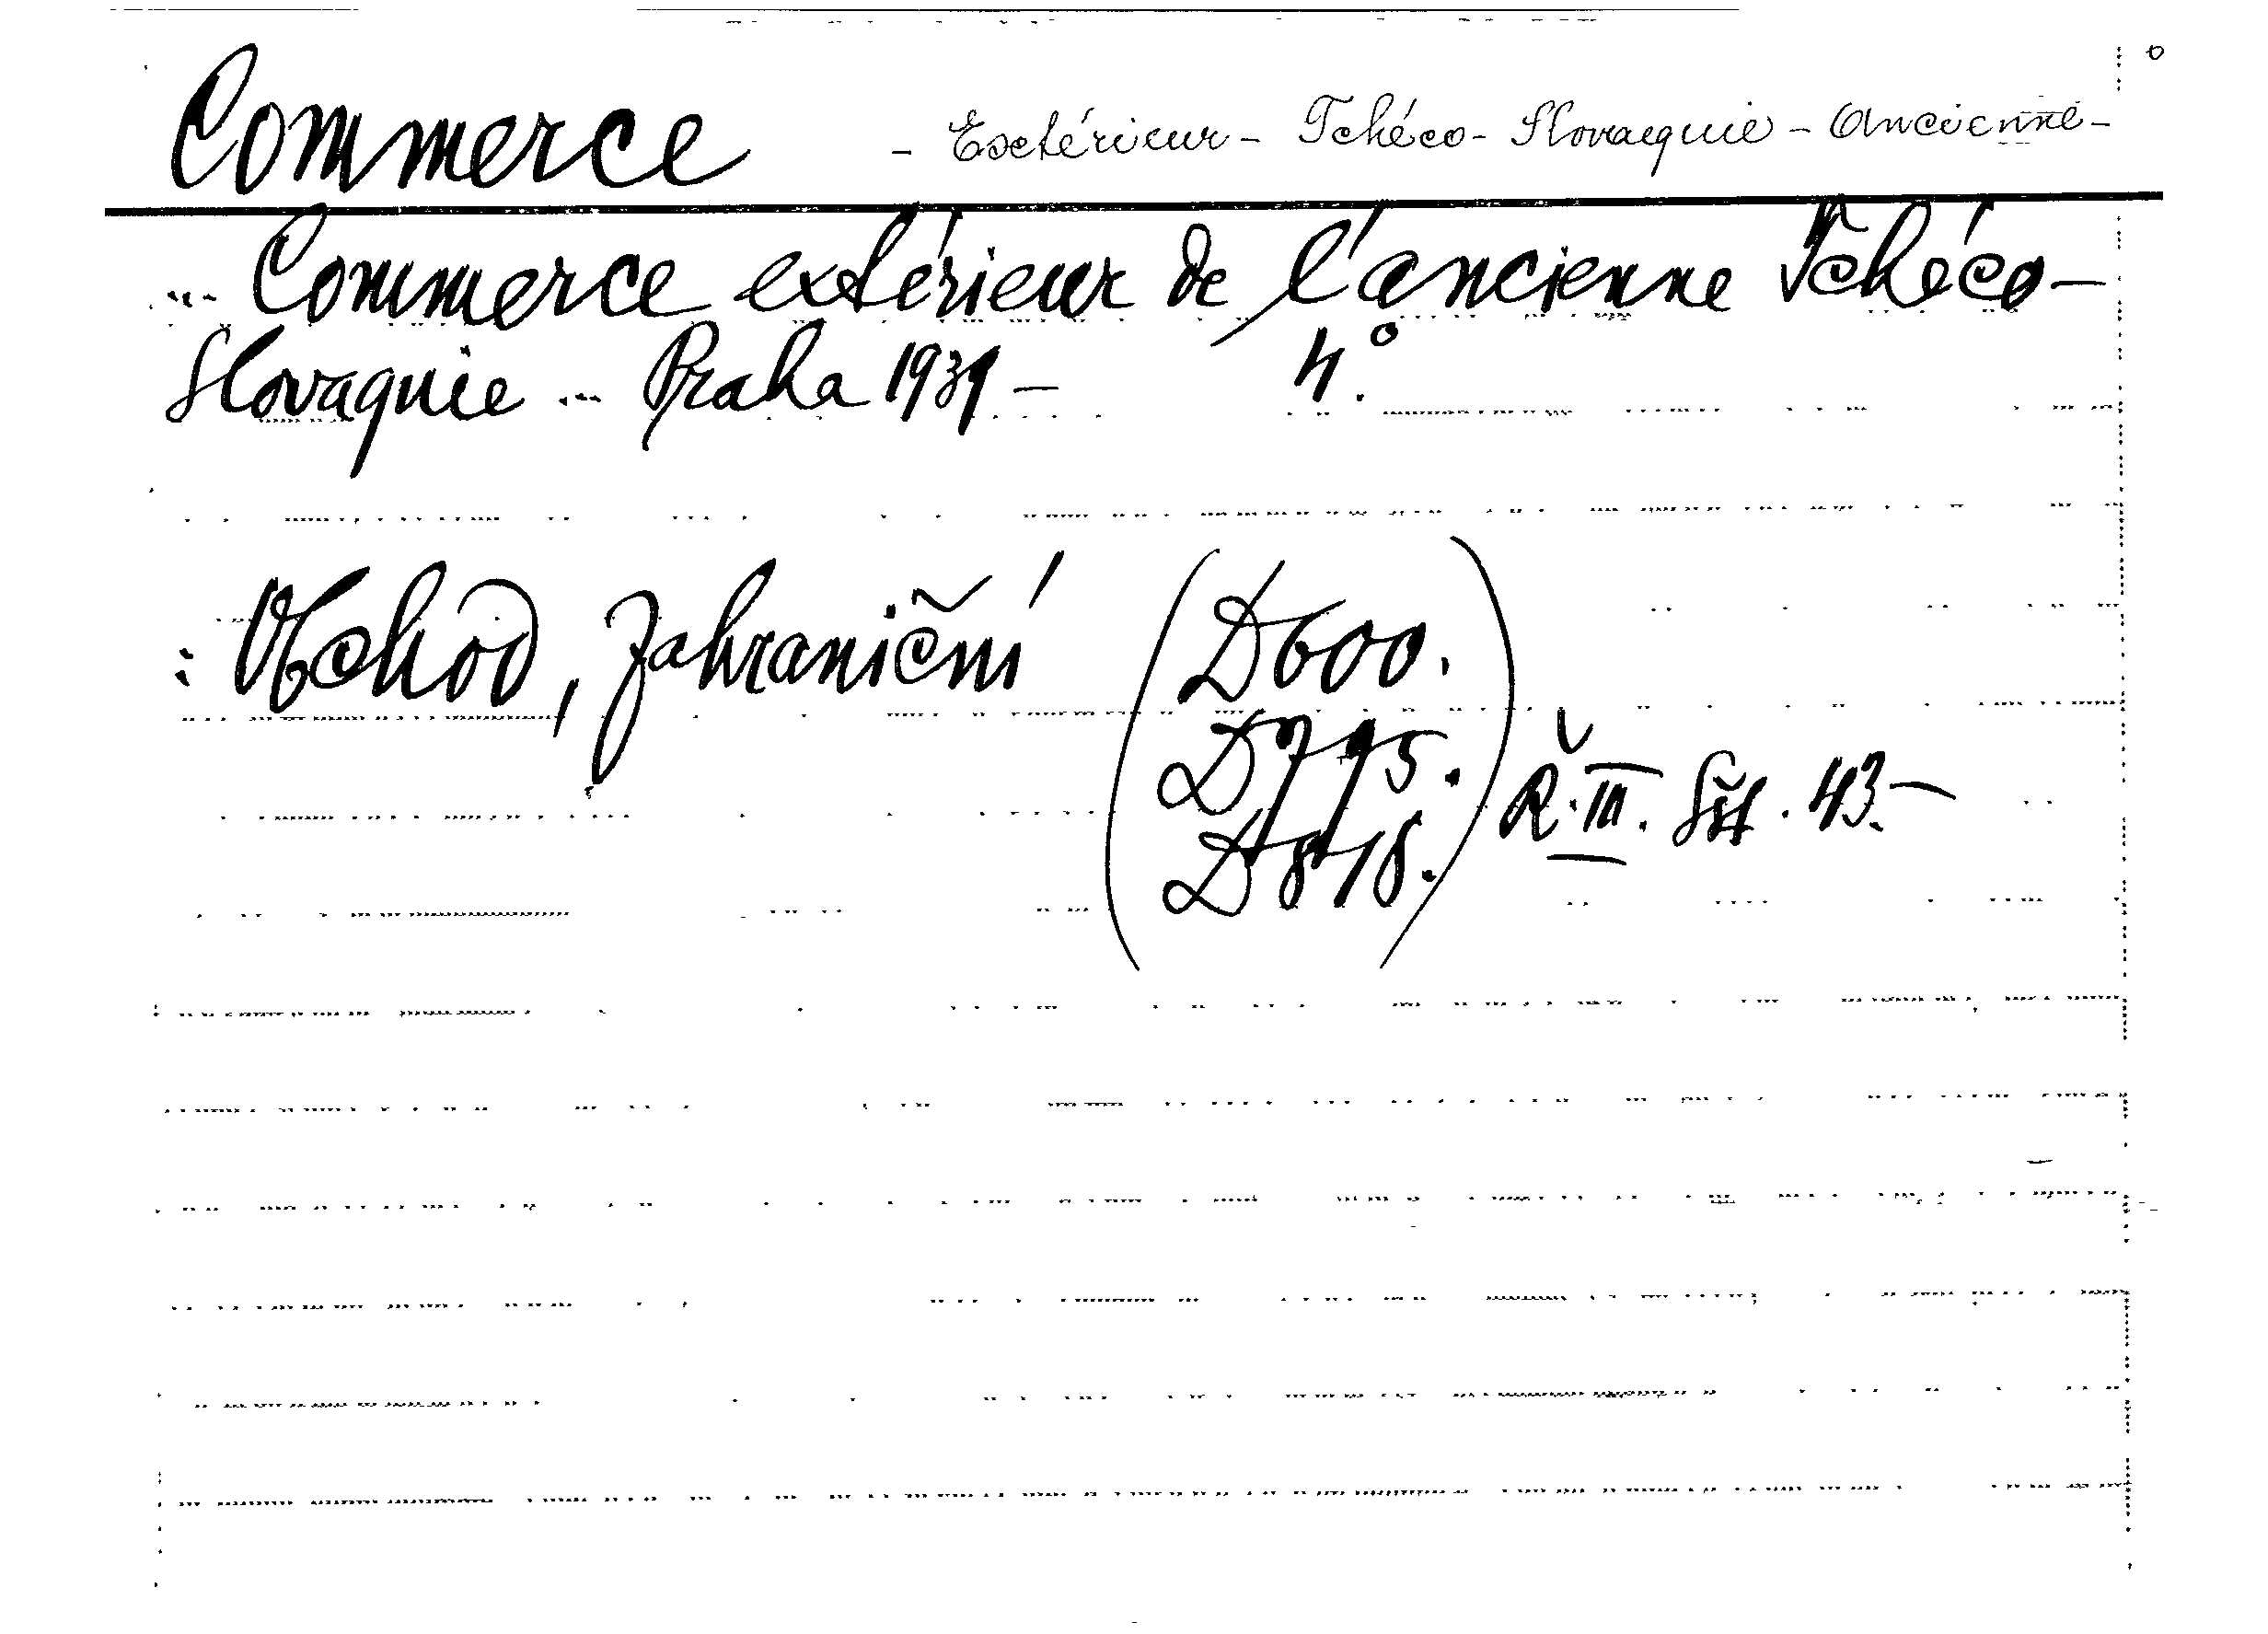 Commerce - Extérieur - Tchéco - Slovaquie - Ancienne -
... Commerce extérieur de l'ancienne Tchéco-
Slovaquie ... Praha 1939 - 4°.
: Obchod, zahraniční (D600.
D795.
D848.) Ř. III. 43.-